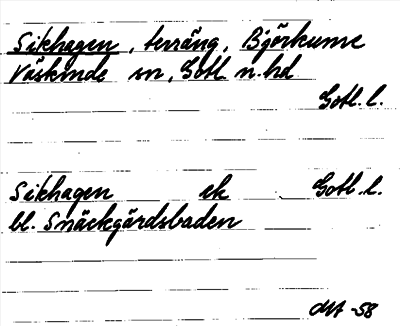 Sikhagen, terräng, Björkume
Väskinde sn, Gotl n. hd
Gotl. l.
Sikhagen ek Gotl. l.
bl. Snäckgärdsbaden
-58